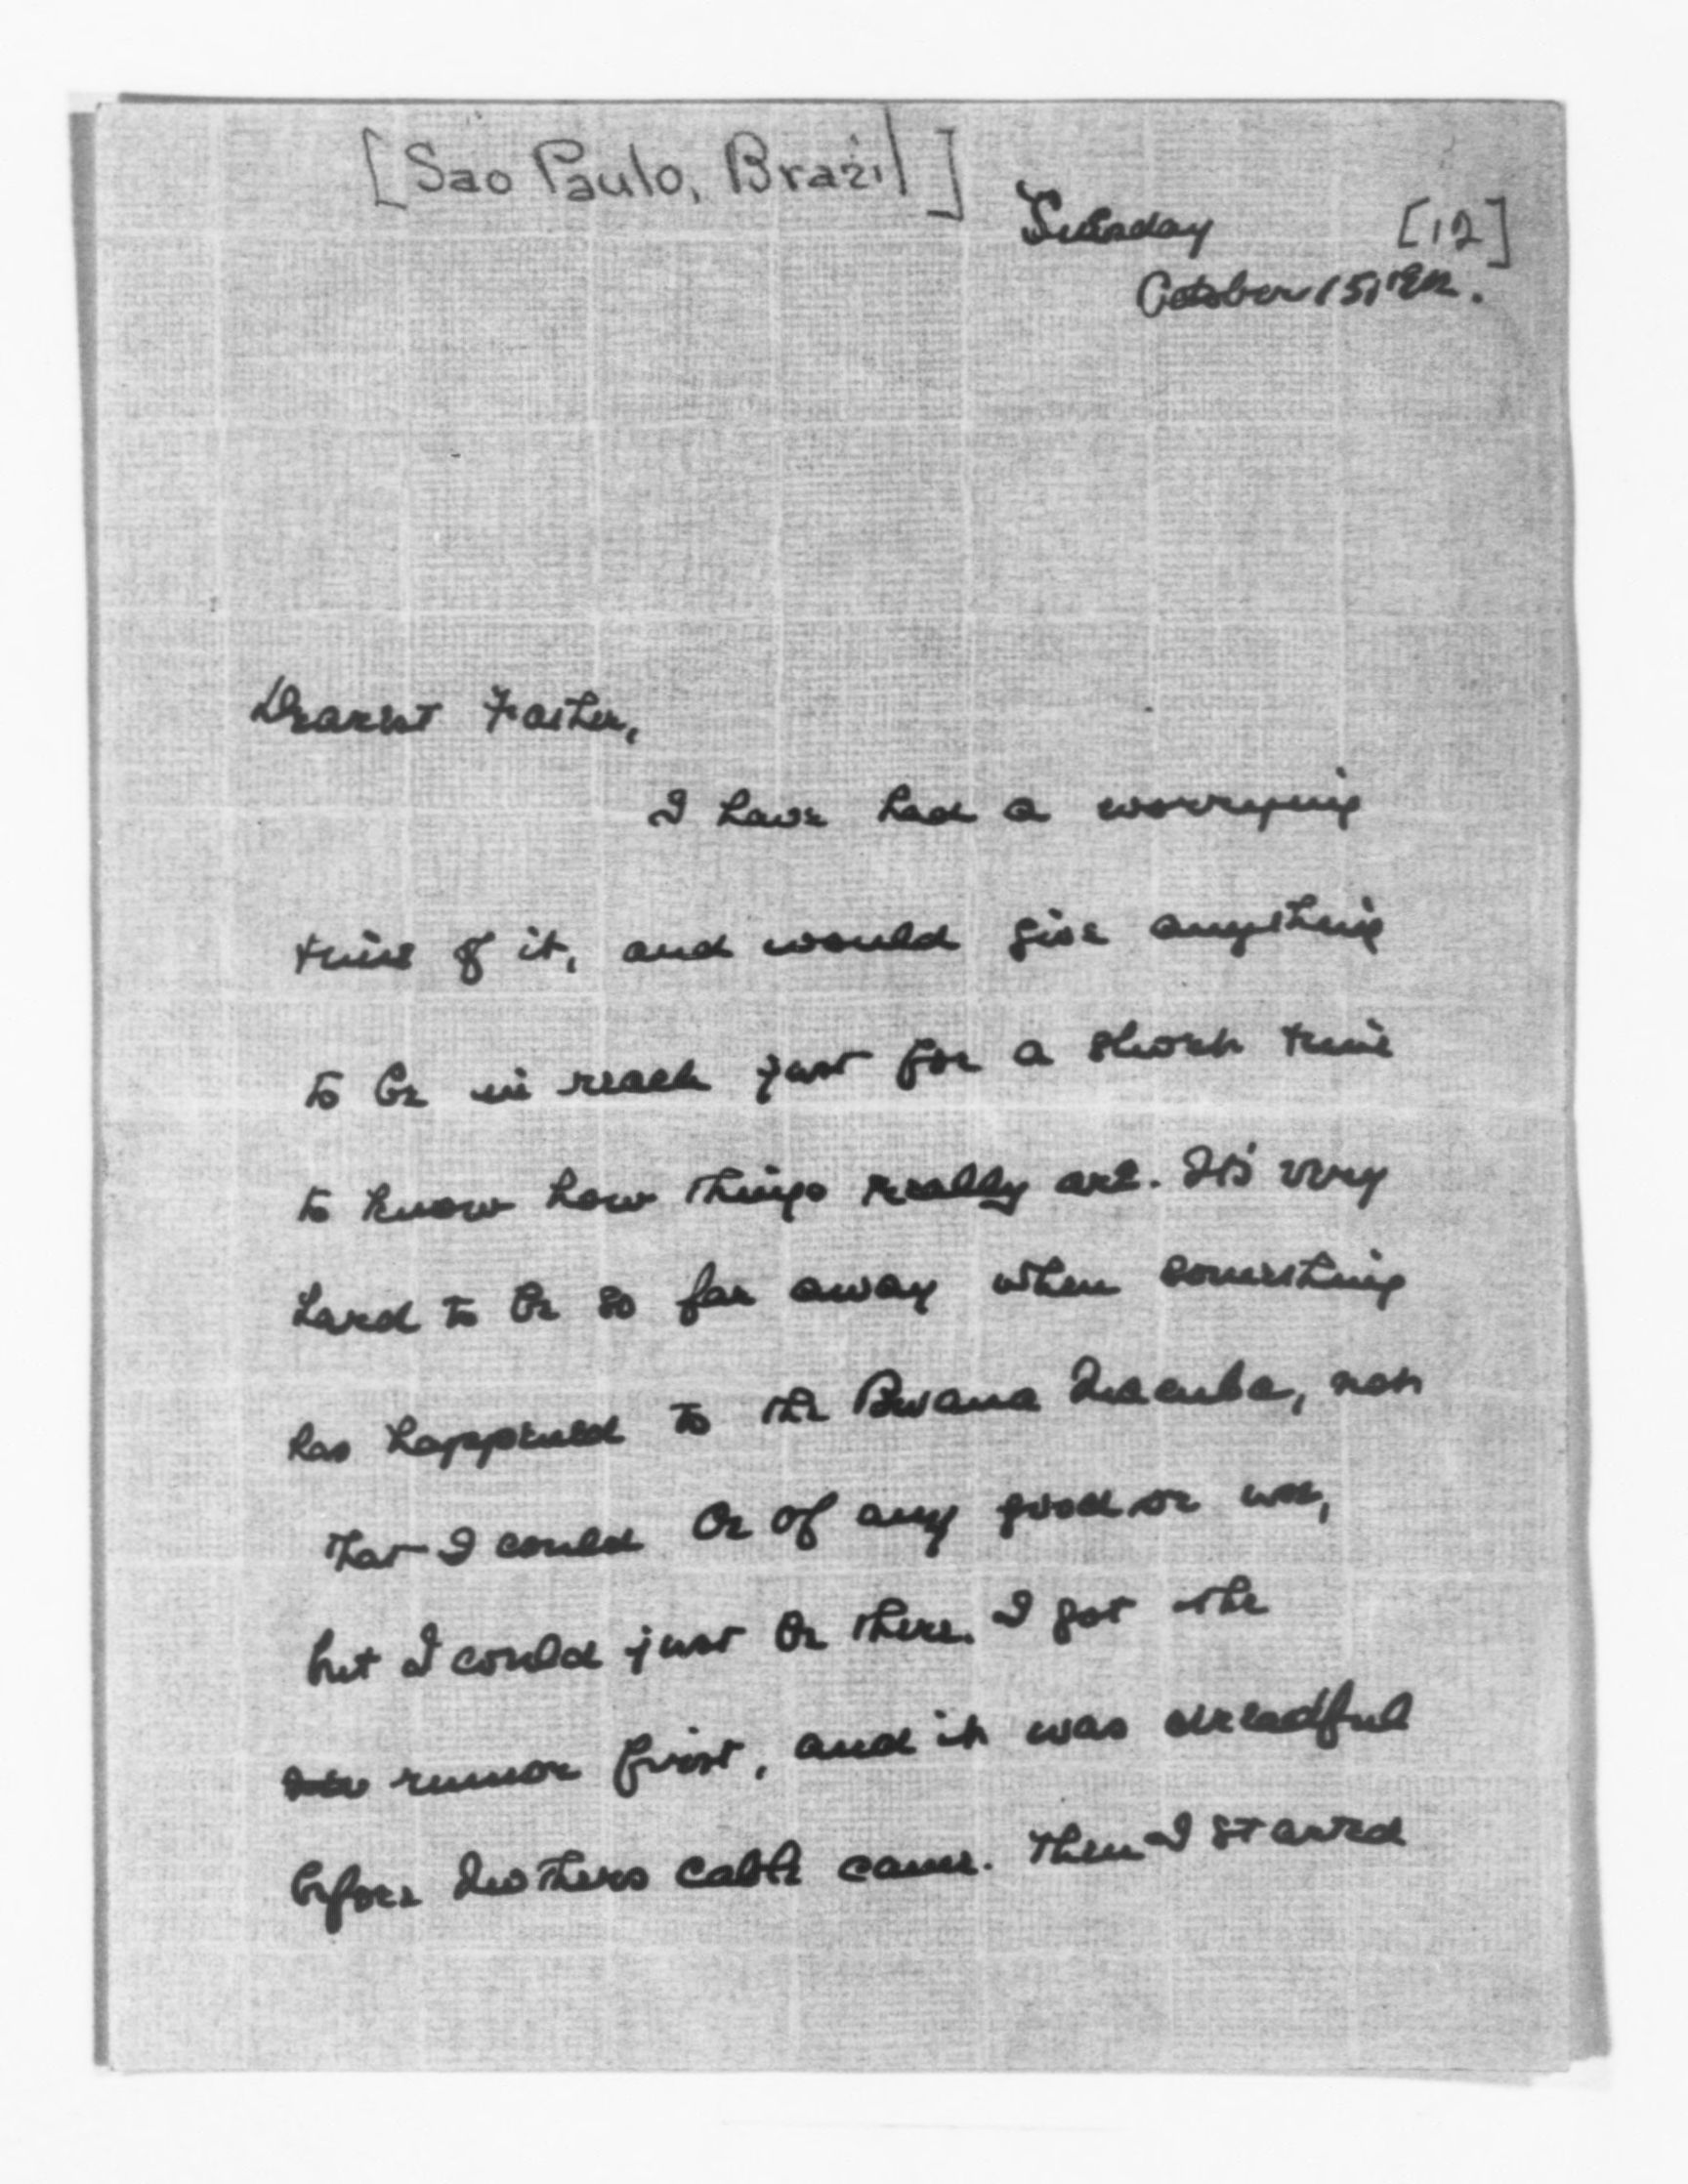 [Sao Paulo, Brazil]
Tuesday [12]
October 15, 1912.
Dearest Father,
I have had a worrying
time of it, and would give anything
to be in reach just for a short time
to know how things really are. It's very
hard to be so far away when something
has happened to the Bwana Macuba, not
that I could be of any good or use,
but I could just be there. I got the
rumor first, and it was dreadful
before Mothers cable came. Then I started